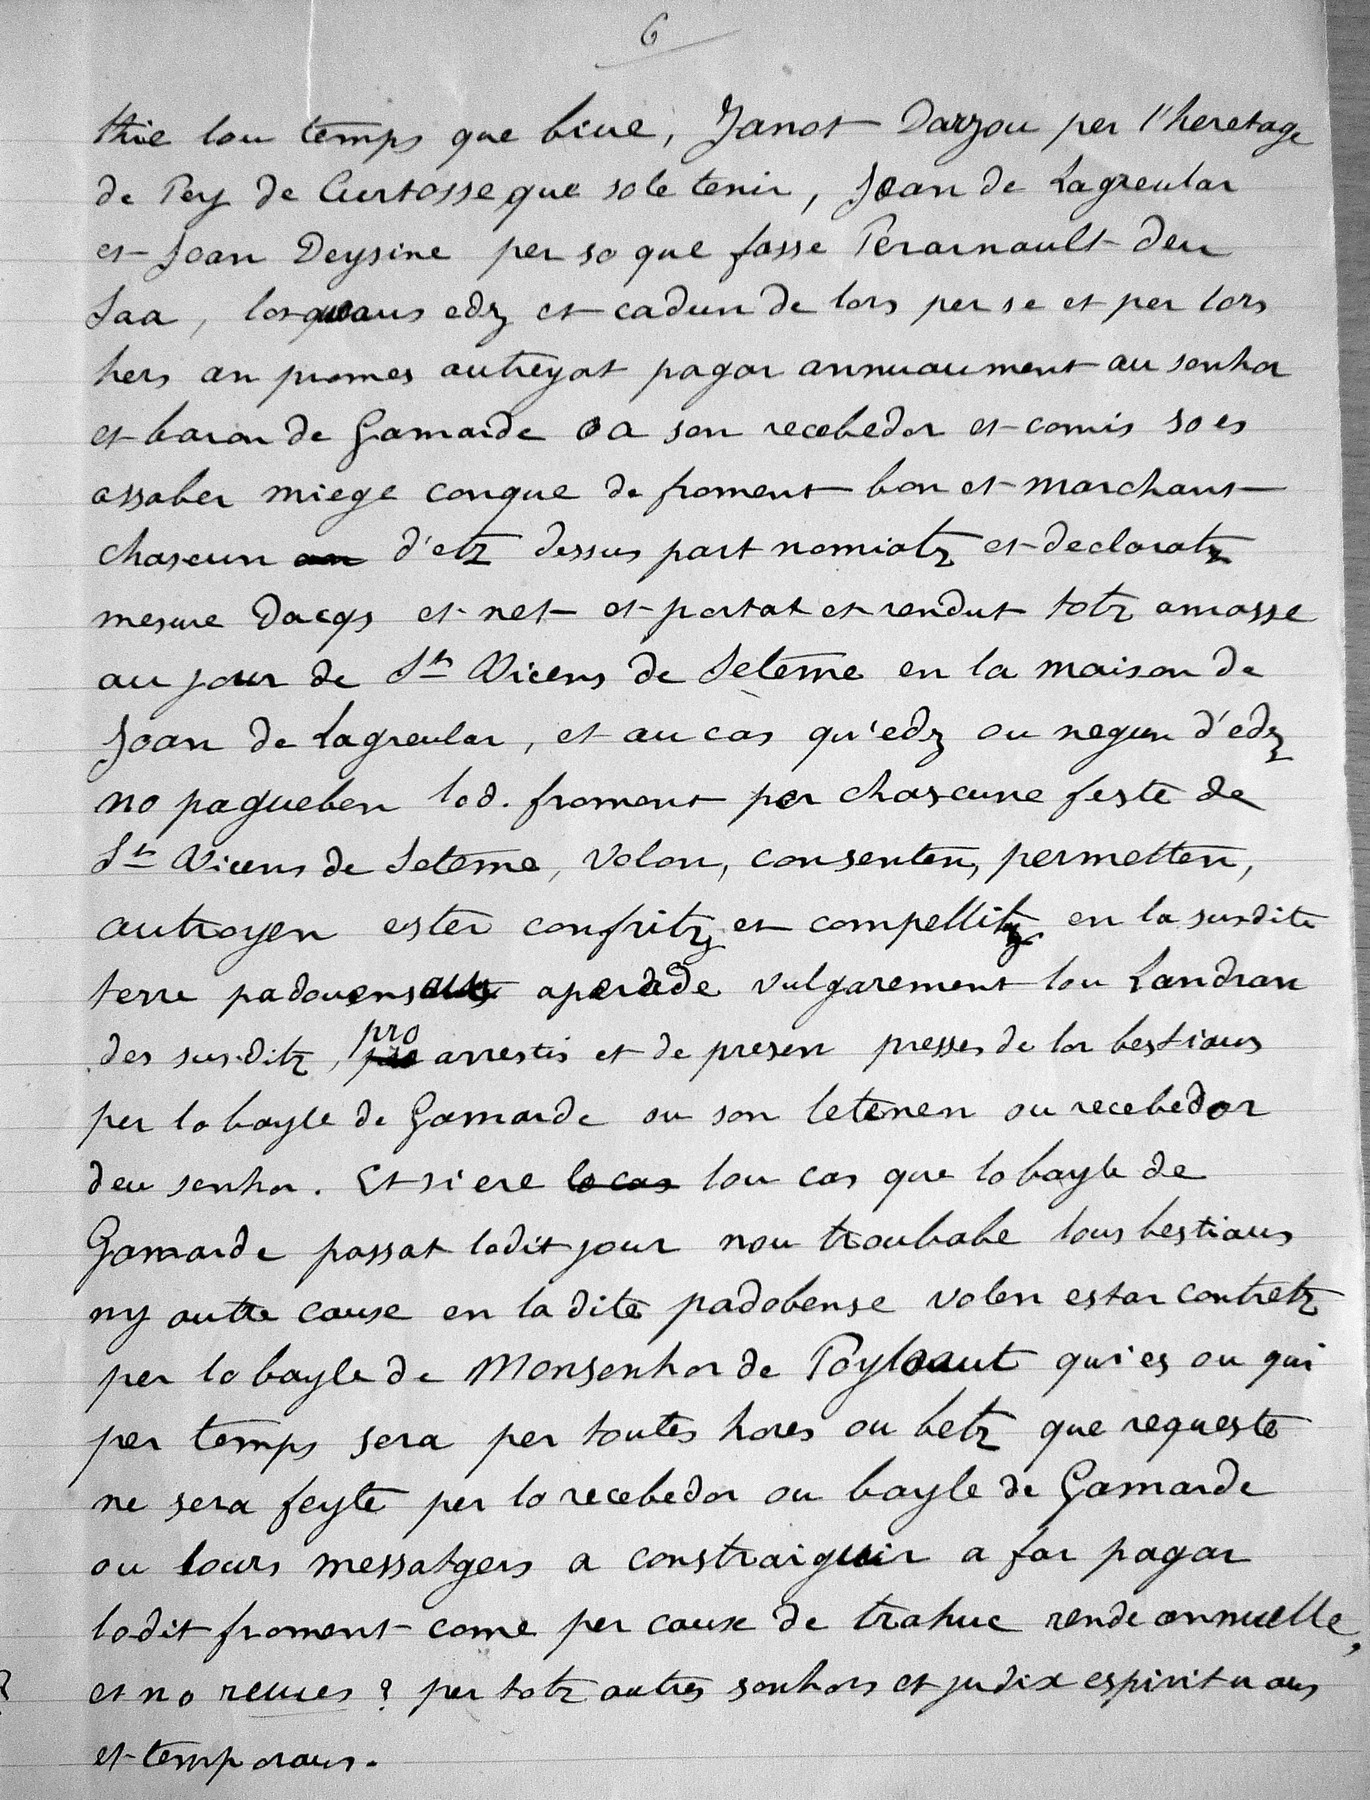 6
thie lou temps que biue, Janot Darzou per l'heretage
de Pey de Curtosse que sole tenir, Joan de Lagreular
et Joan Deysine per so que fasse Perarnault deu
Saa, losquaus edz et cadun de lors per se et per lors
hers an promes autreyat pagar annuaument au senhor
et baron de Gamarde o a son recebedor et comis so es
assaber miege conque de froment bon et marchant
chascun an d'etz dessus part nomiatz et declaratz
mesure Dacqs et net et portat et rendut totz amasse
au jour de St Vicens de Seteme en la maison de
Joan de Lagreular, et au cas qu'edz ou negun d'edz
no pagueben lod. froment per chascune feste de
St Vicens de Seteme, volon, consenten, permetten,
autroyen ester confritz et compellitz en la susdite
terre padouens aperade vulgarement lou Landran
des susditz, pro arrestis et de presen presses de lor bestiaus
per lo bayle de Gamarde ou son letenen ou recebedor
deu senhor. Et si ere lo cas lou cas que lo bayle de
Gamarde passat lodit jour nou troubabe lous bestiaus
ny autre cause en la dite padobense volen estar contretz
per lo bayle de Monsenhor de Poylaut qui es ou qui
per temps sera per toutes hores ou betz que requeste
ne sera feyte per lo recebedor ou bayle de Gamarde
ou lours messatgers a constraiguir a far pagar
lodit froment come per cause de trahuc rende annuelle,
et no reuues ? per totz autres senhors et judix espirituaus
et temporaus.